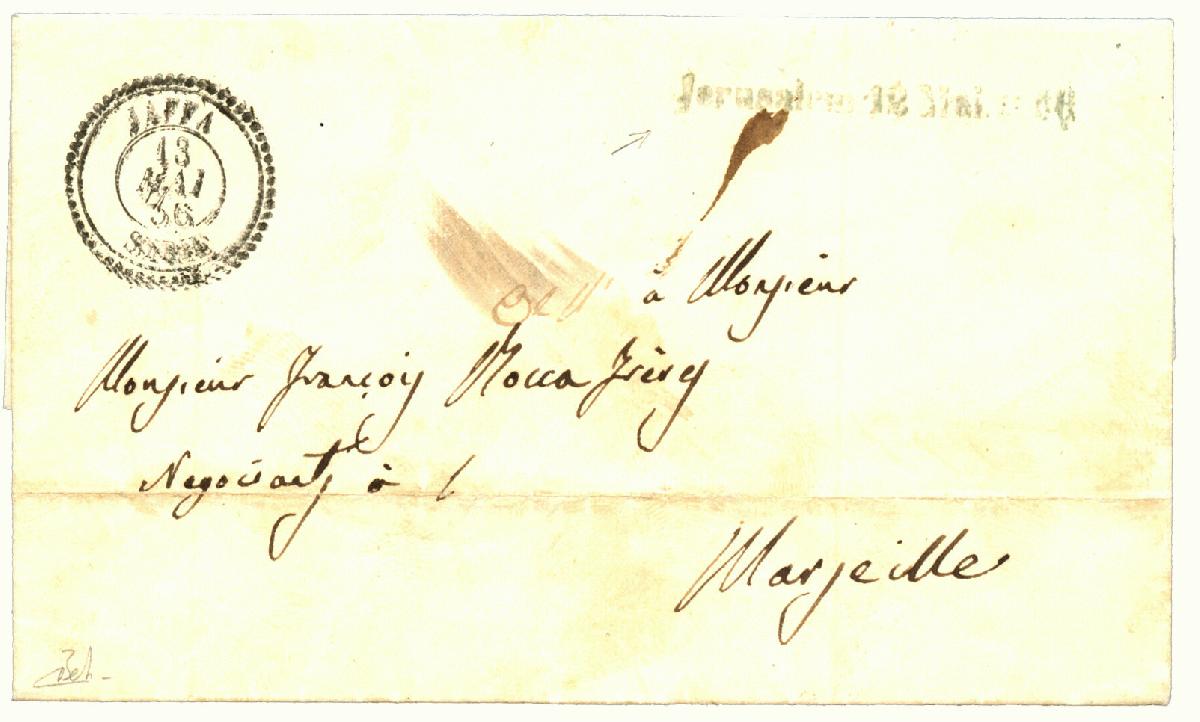 JAFFA
13
MAI
56
SYRIE
Jerusalem
à Monsieur
Monsieur François Rocca Frères
Negociants à
Marseille